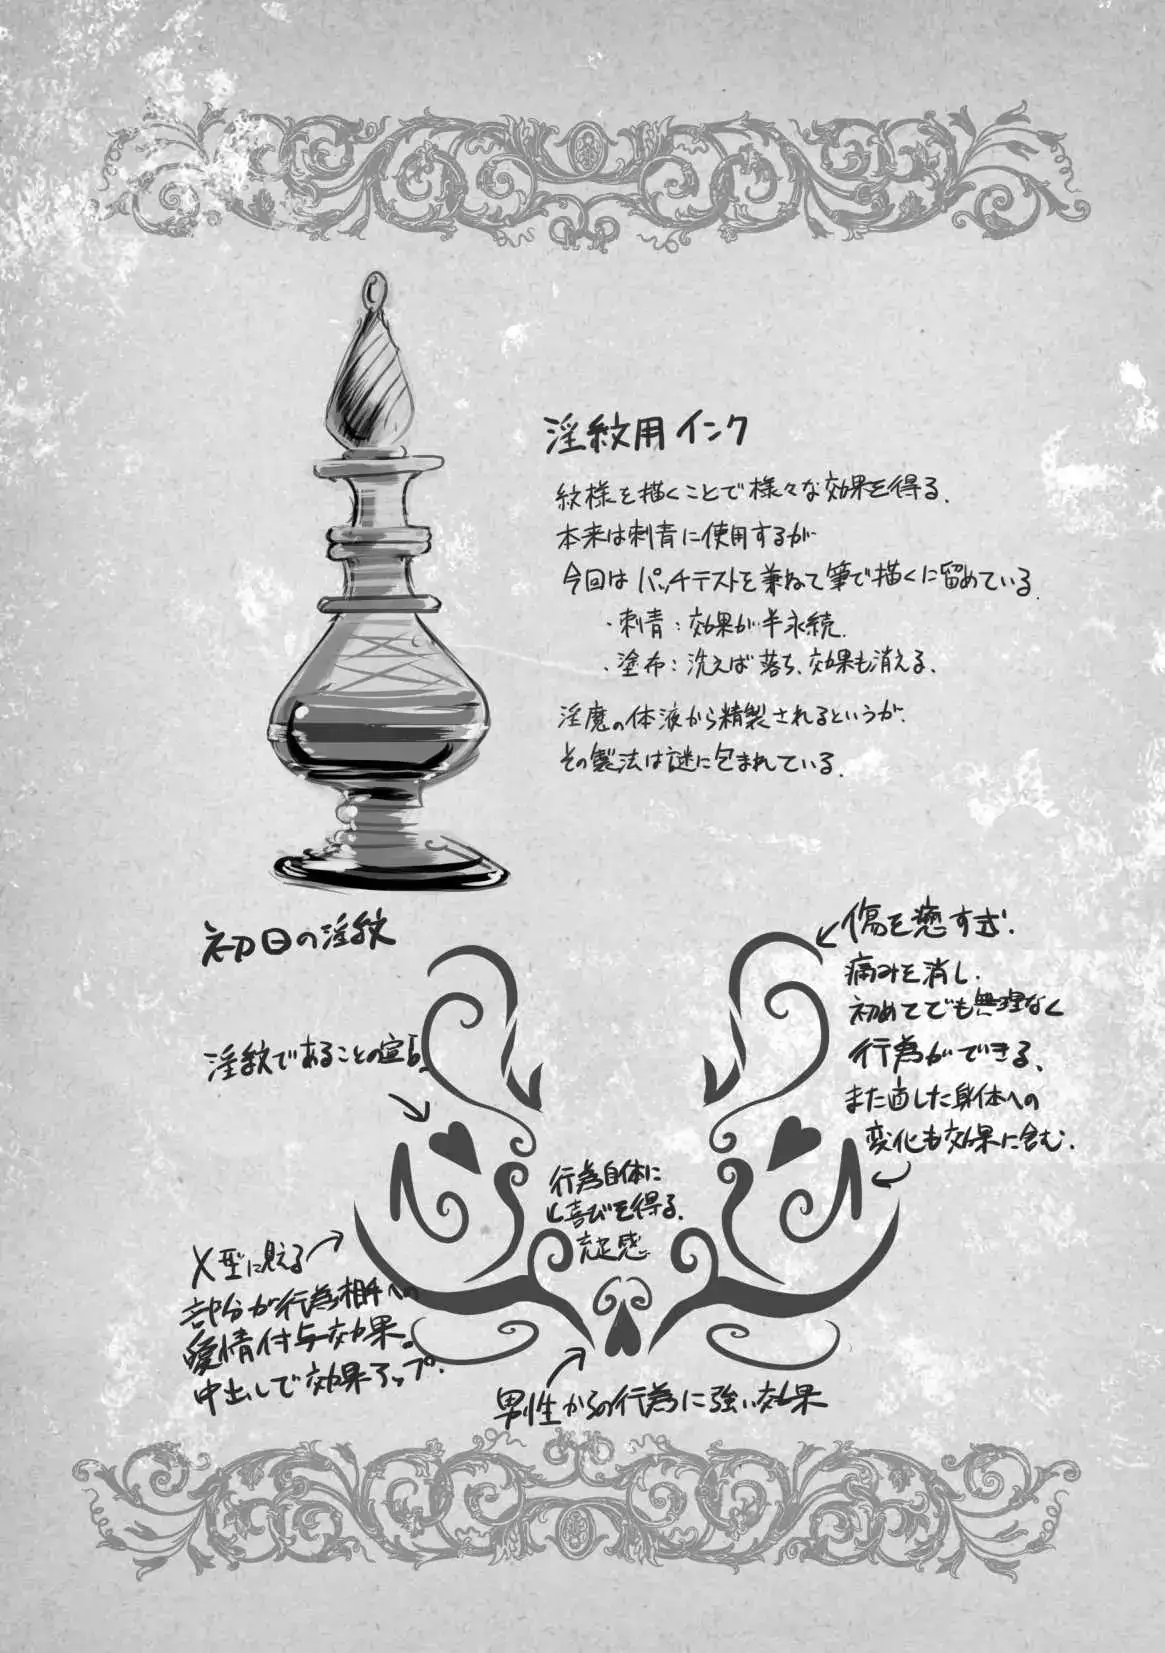 淫紋用インク
紋様を描くことで様々な効果を得る.
本来は刺青に使用するが
今回はパッチテストを兼ねて筆で描くに留めている.
・刺青：効果が半永続.
・塗布：洗えば落ち、効果も消える.
淫魔の体液から精製されるというが、
その製法は謎に包まれている.
初日の淫紋
淫紋であることの宣言
傷を癒す式.
痛みを消し.
初めてでも無理なく
行為ができる.
また適した身体への
変化も効果に含む.
行為自体に
喜びを得る.
充足感
X型に見える
部分が行為相手への
愛情付与効果.
中出しで効果アップ.
男性からの行為に強い効果